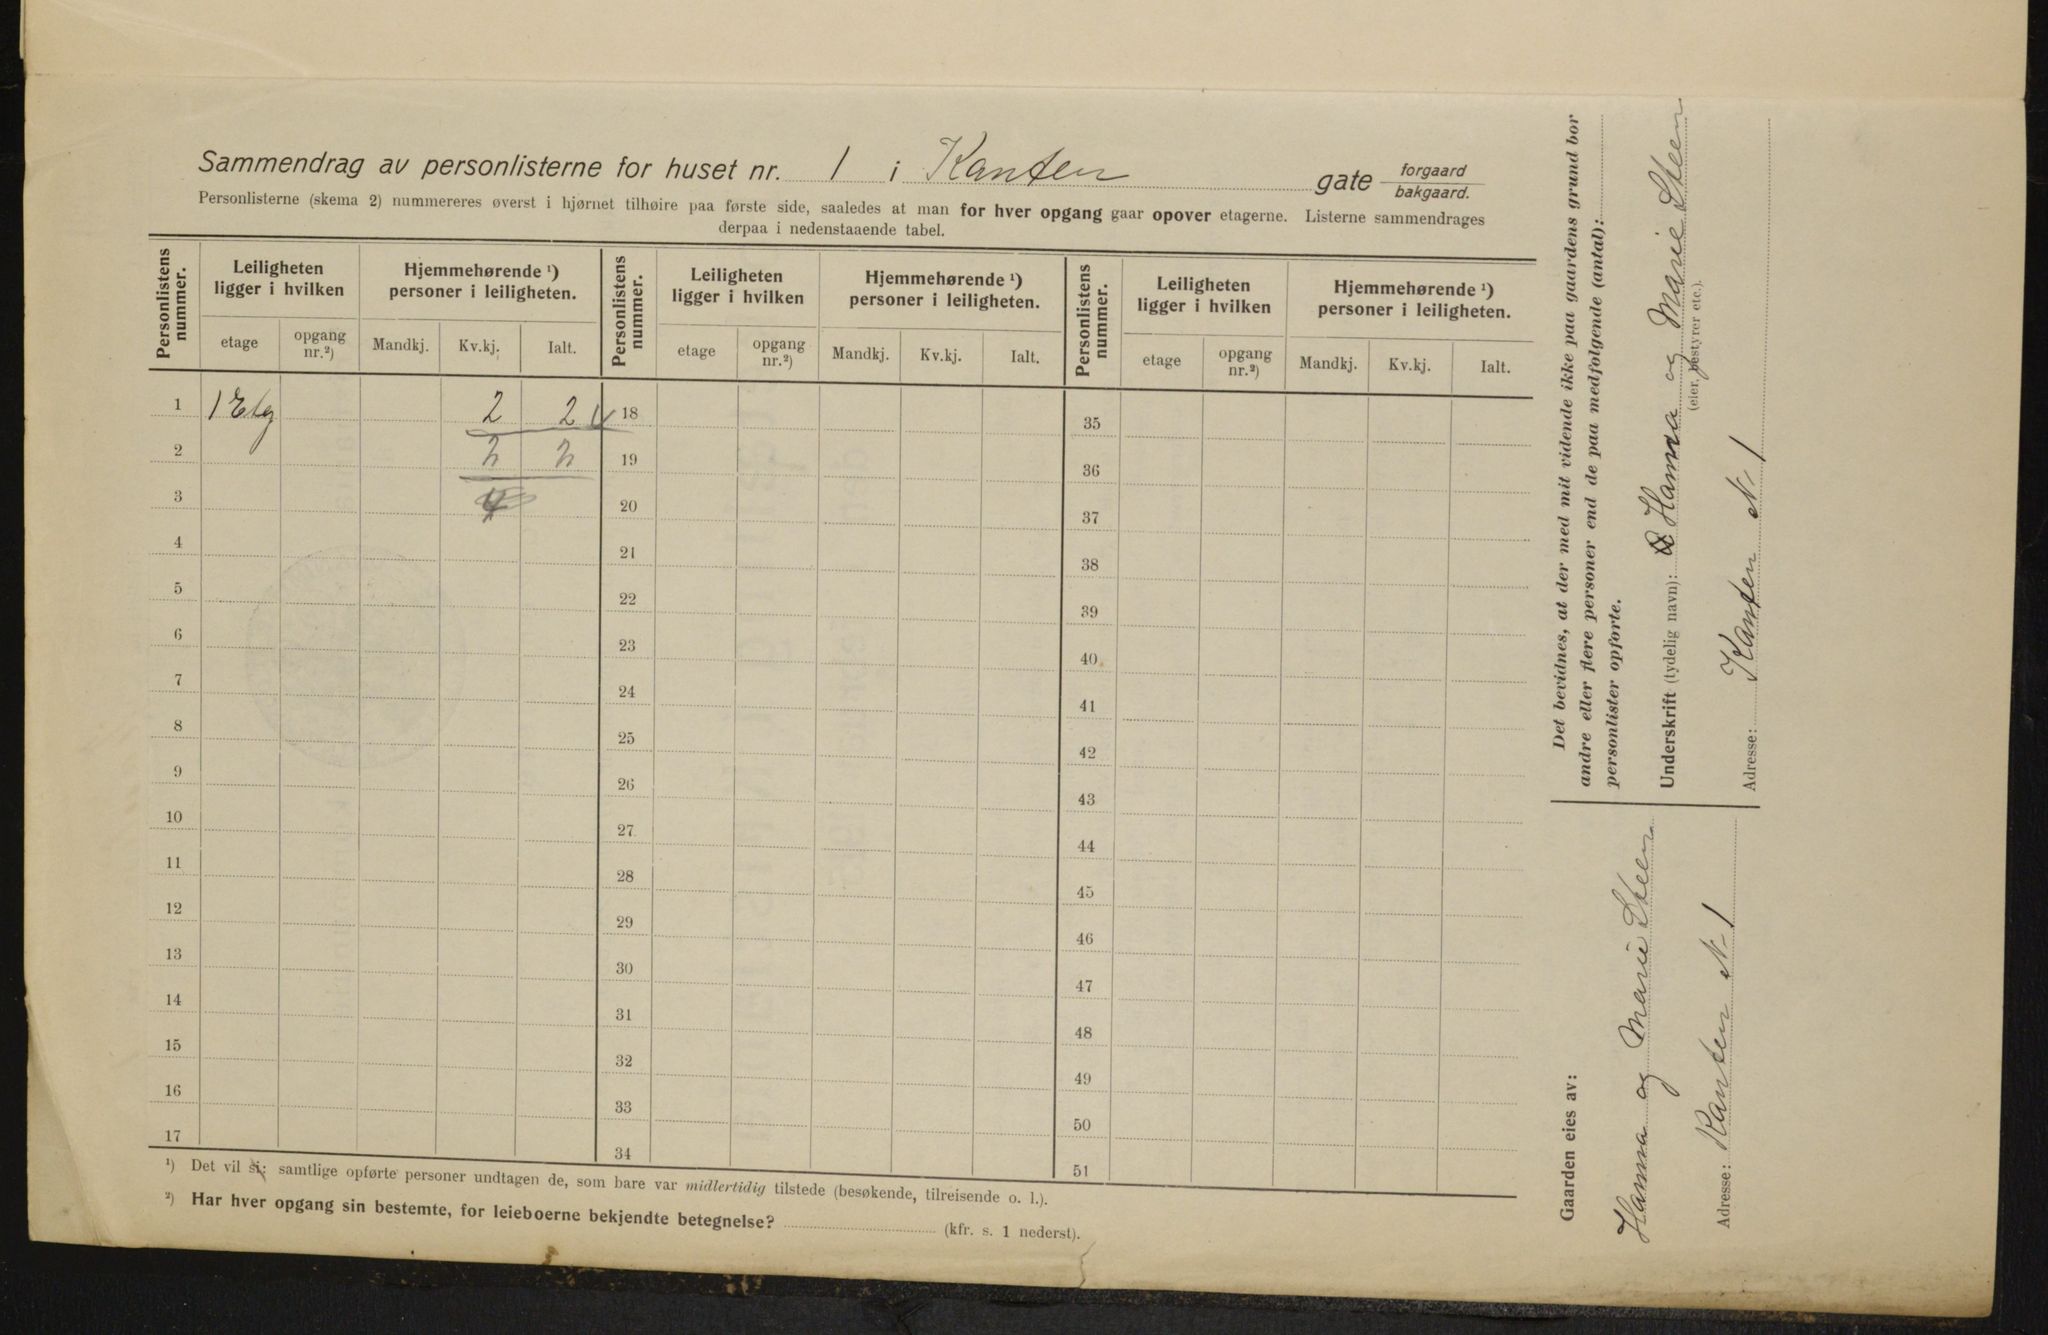 Sammendrag av personlisterne for huset nr. 1 i Kanten gate forgaard bakgaard.
Personlisterne (skema 2) nummereres øverst i hjørnet tilhøire paa første side, saaledes at man for hver opgang gaar opover etagerne. Listerne sammendrages
derpaa i nedenstaaende tabel.
Personlistens nummer. Leiligheten ligger i hvilken Hjemmehørende ¹) personer i leiligheten. Personlistens nummer. Leiligheten ligger i hvilken Hjemmehørende ¹) personer i leiligheten. Personlistens nummer. Leiligheten ligger i hvilken Hjemmehørende ¹) personer i leiligheten.
etage opgang nr.²) Mandkj. Kv.kj. Ialt. etage opgang nr.²) Mandkj. Kv.kj. Ialt. etage opgang nr.²) Mandkj. Kv.kj. Ialt.
1 1 Etg 2 2 18 35
2 2 2 19 36
3 20 37
4 21 38
5 22 39
6 23 40
7 24 41
8 25 42
9 26 43
10 27 44
11 28 45
12 29 46
13 30 47
14 31 48
15 32 49
16 33 50
17 34 51
¹) Det vil si: samtlige opførte personer undtagen de, som bare var midlertidig tilstede (besøkende, tilreisende o. l.).
²) Har hver opgang sin bestemte, for leieboerne bekjendte betegnelse? (kfr. s. 1 nederst).
Det bevidnes, at der med mit vidende ikke paa gaardens grund bor
andre eller flere personer end de paa medfølgende (antal):
personlister opførte.
Underskrift (tydelig navn): Hanna og Marie Steen
(eier, bestyrer etc.).
Adresse: Kanten N 1
Gaarden eies av:
Hanna og Marie Steen
Adresse: Kanten N 1